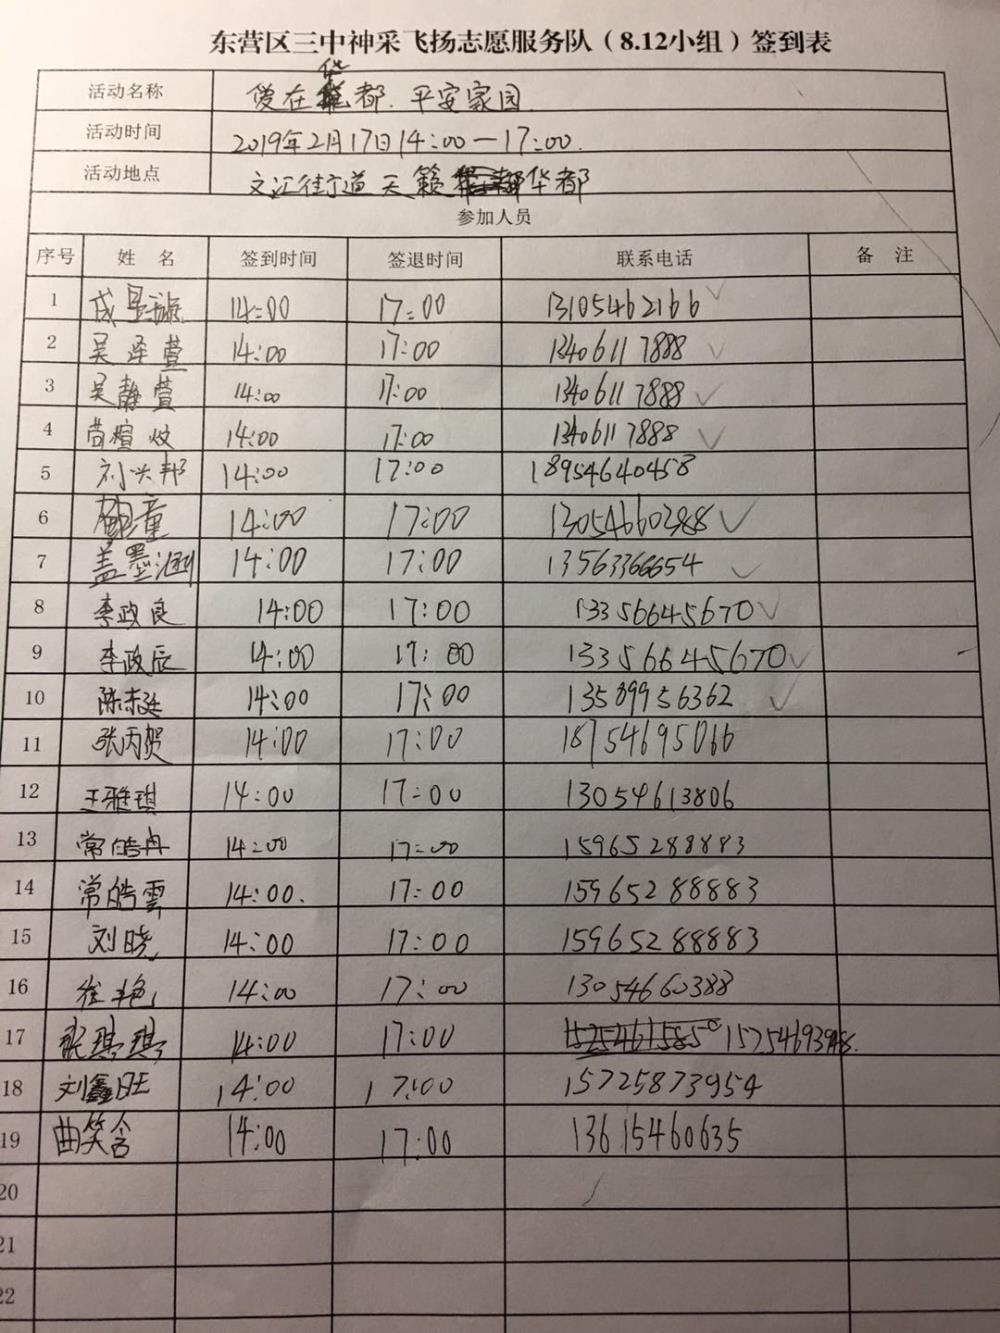 东营区三中神采飞扬志愿服务队（8.12小组）签到表
活动名称 爱在华都.平安家园.
活动时间 2019年2月17日14:00—17:00.
活动地点 文汇街道天籁华都
参加人员
序号 姓 名 签到时间 签退时间 联系电话 备 注
1 14:00 17:00 13105462166
2 吴泽萱 14:00 17:00 13406117888
3 吴静萱 14:00 17:00 13406117888
4 14:00 17:00 13406117888
5 刘兴邦 14:00 17:00 18954640458
6 14:00 17:00
7 盖墨涵 14:00 17:00 13563366654
8 李政良 14:00 17:00 13356645670
9 李政辰 14:00 17:00 13356645670
10 14:00 17:00 13589956362
11 张丙贺 14:00 17:00 18754695066
12 王雅琪 14:00 17:00 13054613806
13 常皓冉 14:00 17:00 15965288883
14 常皓雲 14:00. 17:00 15965288883
15 刘晓 14:00 17:00 15965288883
16 崔艳 14:00 17:00 13054660388
17 张琪琪 14:00 17:00
18 刘鑫旺 14:00 17:00 15725873954
19 曲笑含 14:00 17:00 13615460635
20
21
22